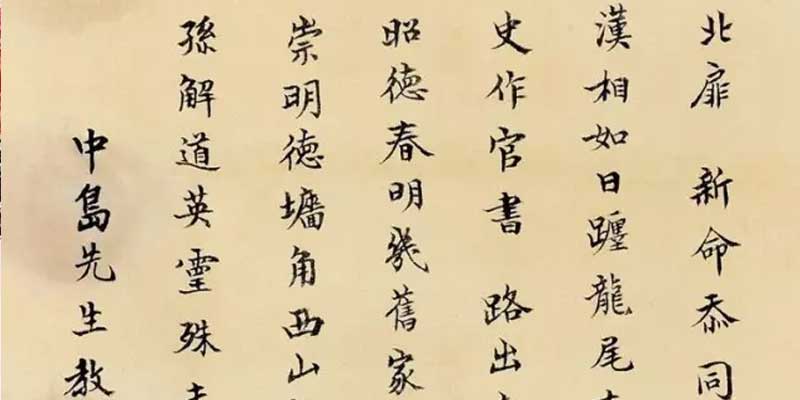 北扉 新命忝同
漢相如日躔龍尾
史作官書 路出
昭德春明幾舊家
崇明德墻角西山
孫解道英靈殊
中島先生教